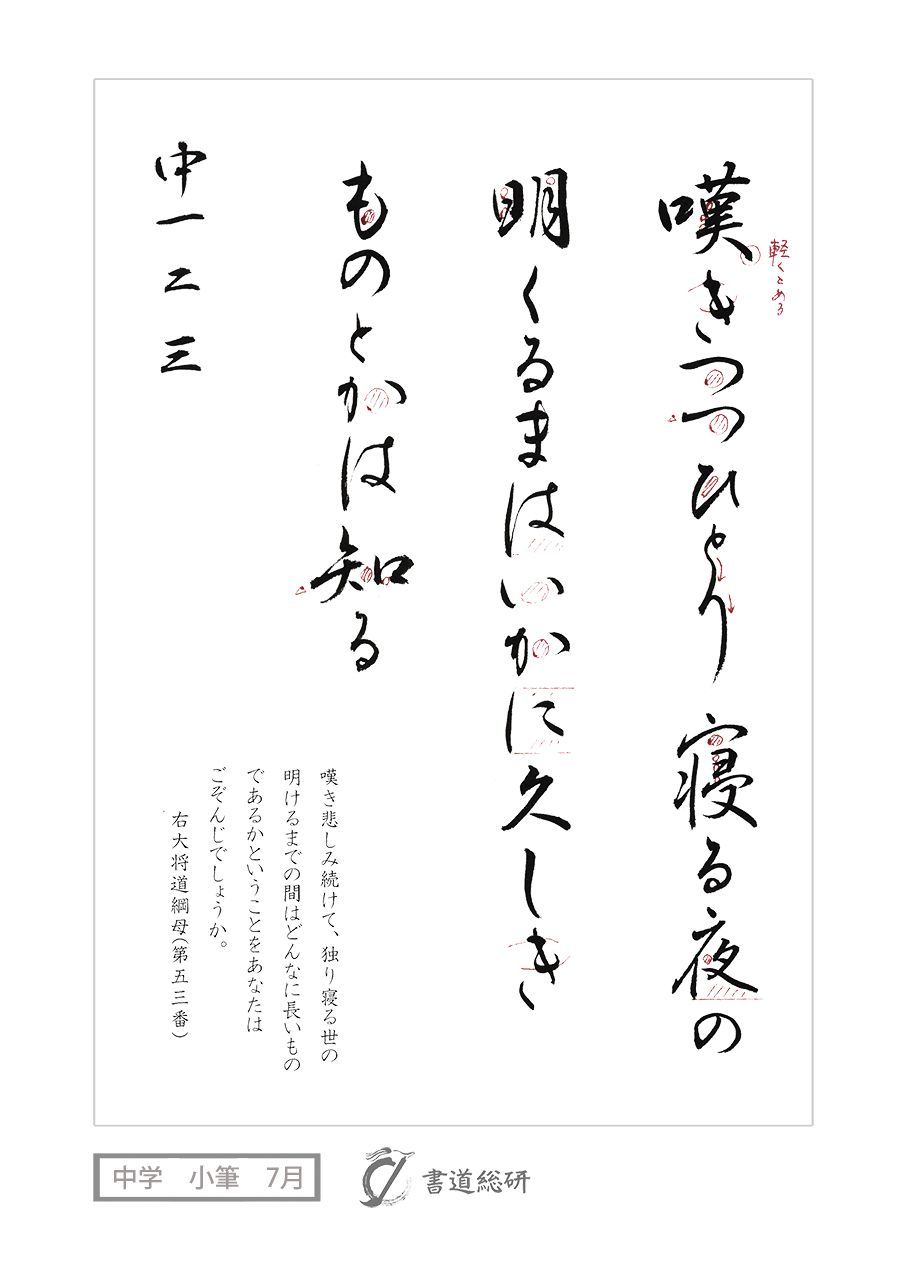 嘆きつつひとり寝る夜の
軽くとめる
明くるまはいかに久しき
ものとかは知る
中一二三
嘆き悲しみ続けて、独り寝る世の
明けるまでの間はどんなに長いもの
であるかということをあなたは
ごぞんじでしょうか。
右大将道綱母(第五三番)
中学 小筆 7月
書道総研